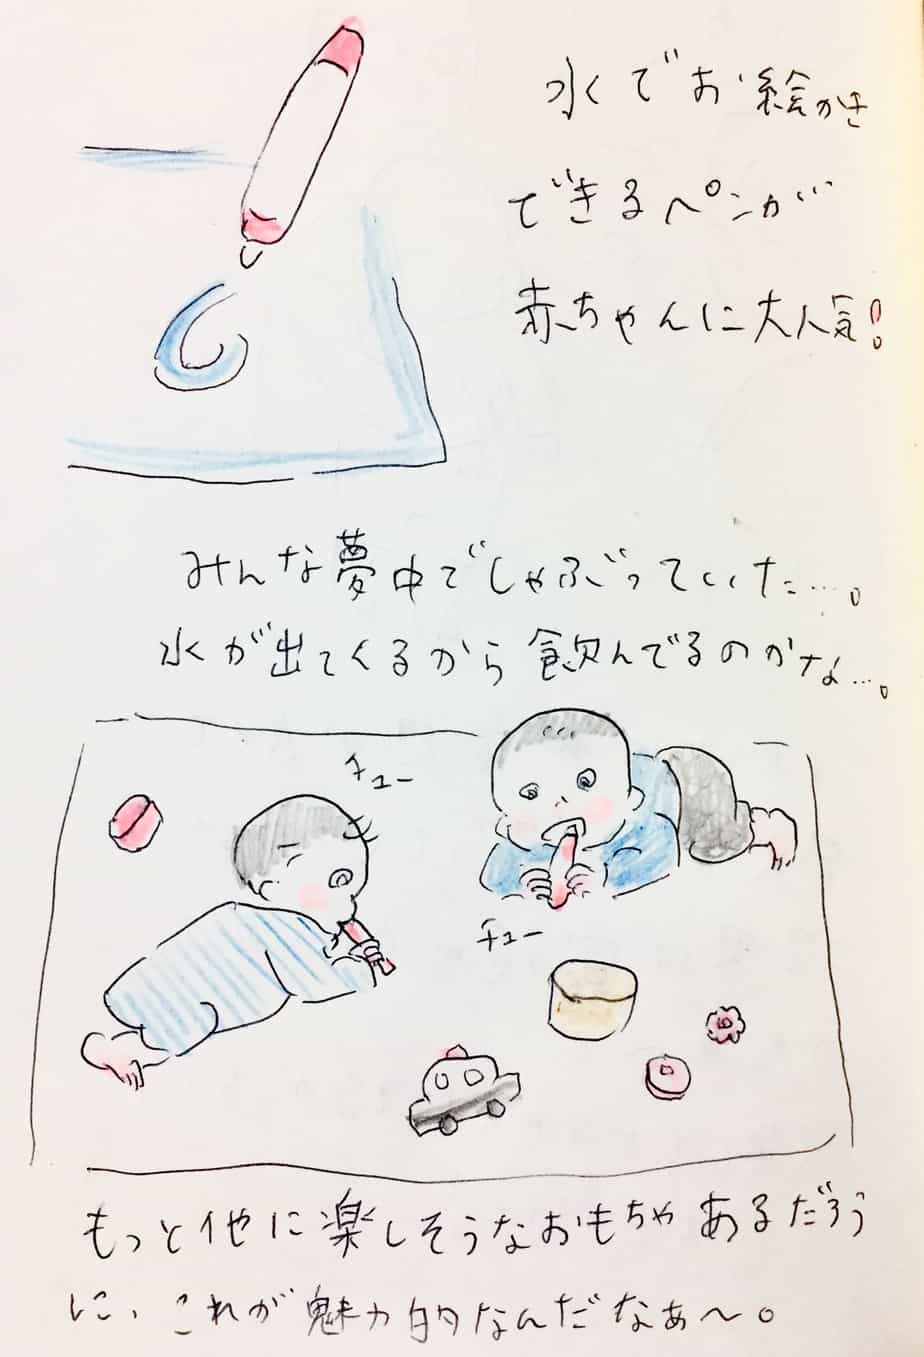 水でお絵かき
できるペンが
赤ちゃんに大人気!
みんな夢中でしゃぶっていた…。
水が出てくるから飲んでるのかな…。
チュー
チュー
もっと他に楽しそうなおもちゃあるだろう
に、これが魅力的なんだなぁ〜。